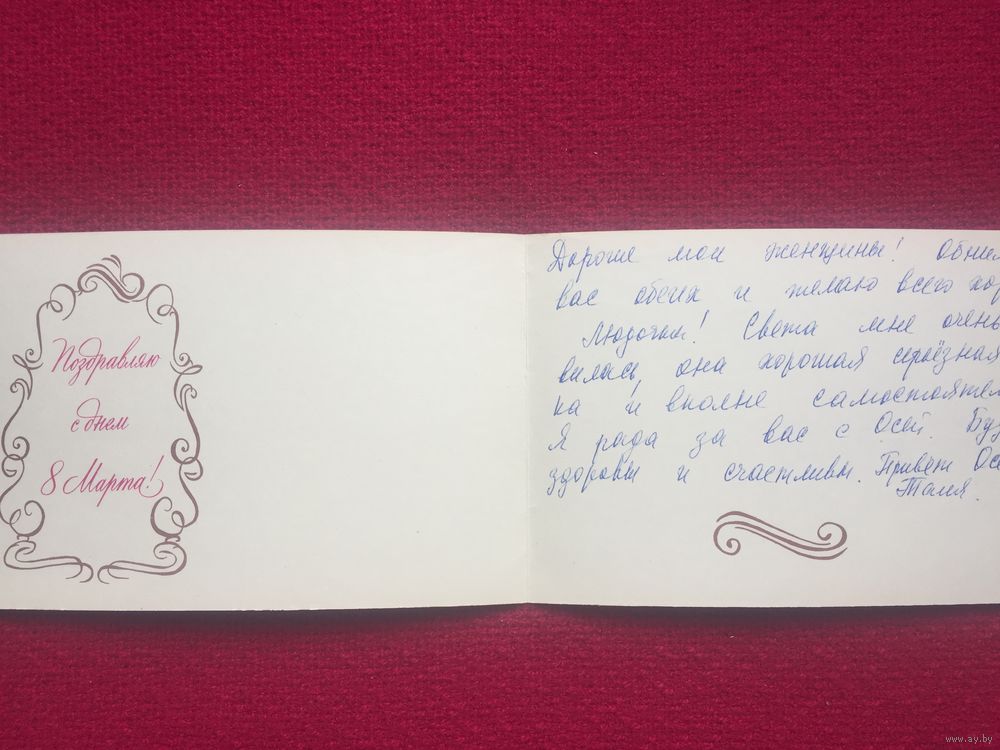 Поздравляю
с днем
8 Марта!
Дорогие мои женщины!
вас обеих и желаю всего
Людочка! Света мне очень
вилась, она хорошая серьёзная
ка и вполне
Я рада за вас с Осей.
здоровы и счастливы. Привет
Таля.
www.ay.by